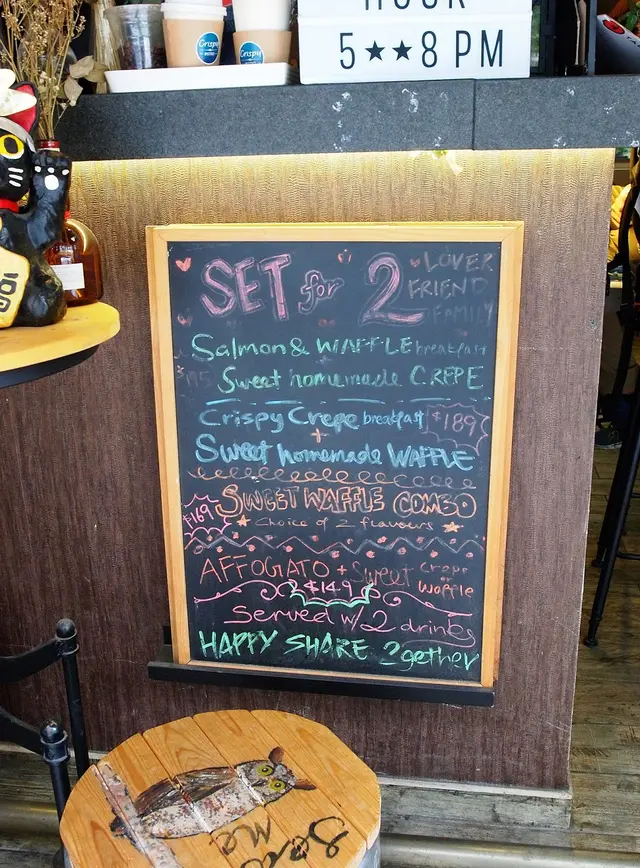 Crispy
Crispy
HOUR
5★★8 PM
SET for 2
LOVER
FRIEND
FAMILY
Salmon & WAFFLE breakfast
+
Sweet homemade CREPE
Crispy Crepe breakfast $189
+
Sweet homemade WAFFLE
$169 SWEET WAFFLE COMBO
Choice of 2 flavours
AFFOGATO + Sweet Crepe
or
Waffle
$149
Served w/ 2 drinks
HAPPY SHARE 2gether
Me